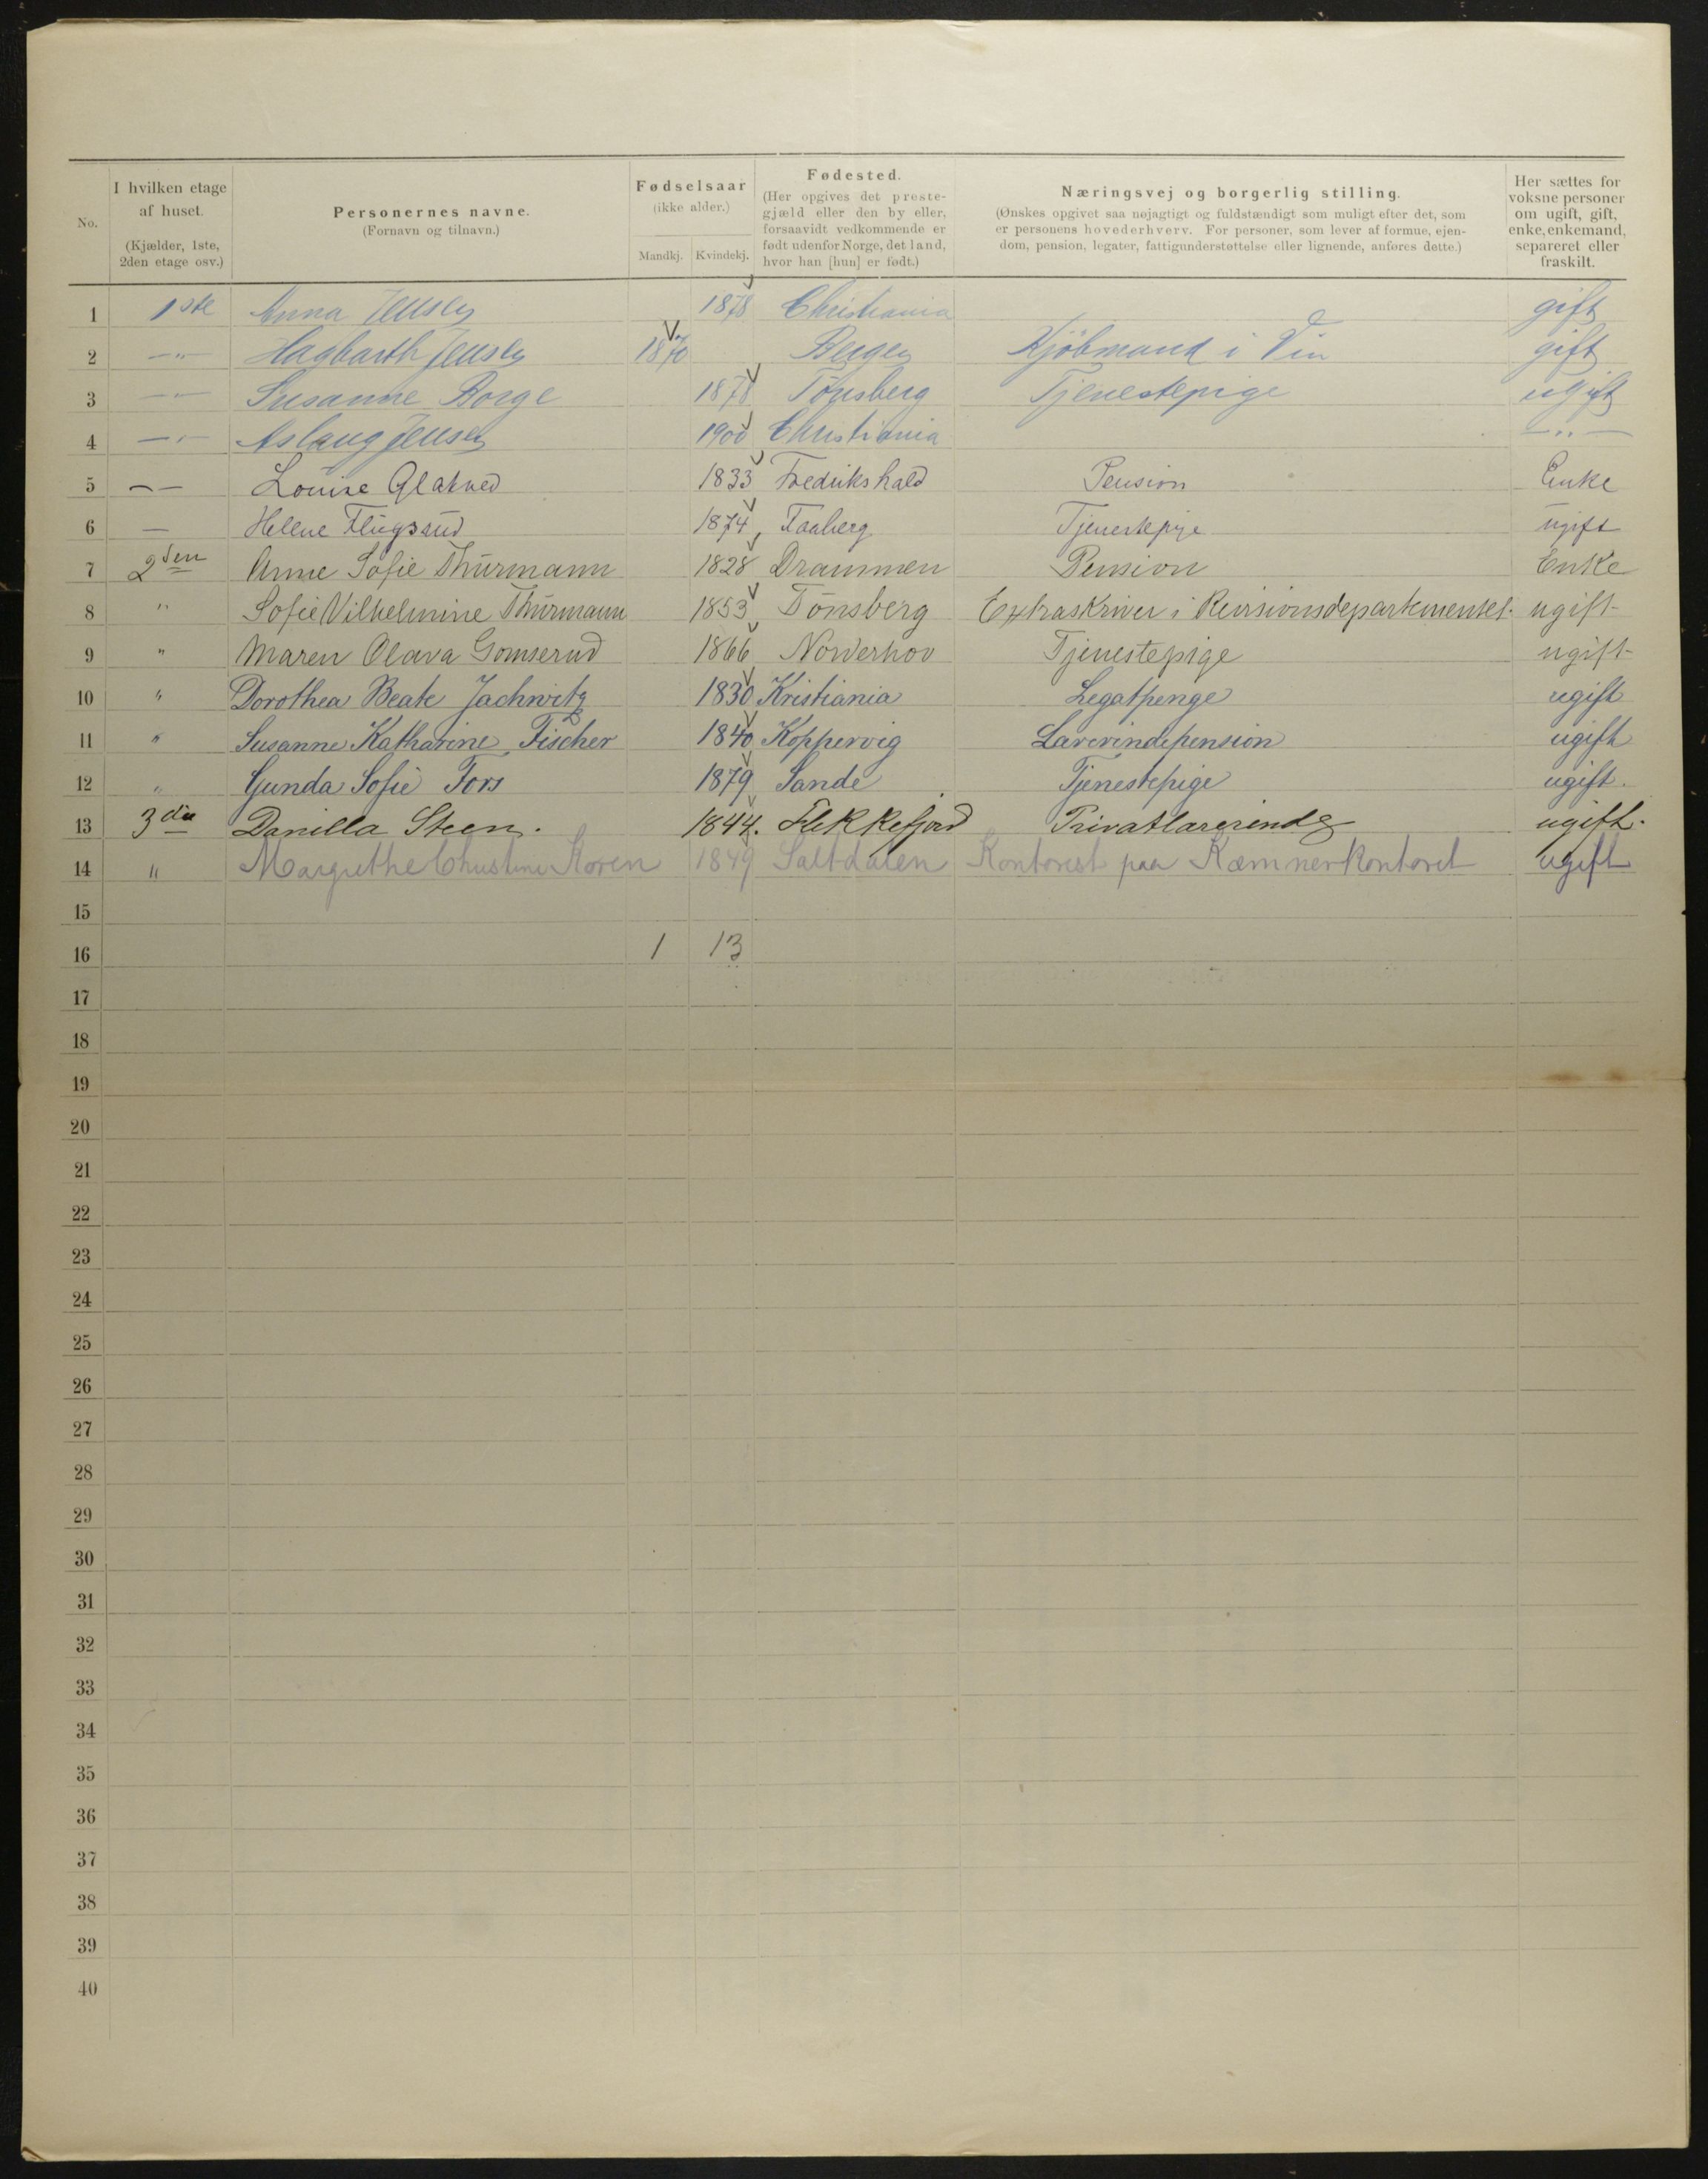 No. I hvilken etage af huset. (Kjælder, 1ste, 2den etage osv.) Personernes navne. (Fornavn og tilnavn.) Fødselsaar (ikke alder.) Mandkj. Kvindekj. Fødested. (Her opgives det prestegjæld eller den by eller, forsaavidt vedkommende er født udenfor Norge, det land, hvor han [hun] er født.) Næringsvej og borgerlig stilling. (Ønskes opgivet saa nøjagtigt og fuldstændigt som muligt efter det, som er personens hovederhverv. For personer, som lever af formue, ejendom, pension, legater, fattigunderstøttelse eller lignende, anføres dette.) Her sættes for voksne personer om ugift, gift, enke, enkemand, separeret eller fraskilt.
1 1ste Anna Jensen 1878 Christiania gift
2 —"— Hagbarth Jensen 1870 Bergen Kjöbmand i Vin gift
3 —"— Susanne Borge 1878 Tönsberg Tjenestepige ugift
4 —"— Aslaug Jensen 1900 Christiania —"—
5 — — Louise Glatved 1833 Fredrikshald Pension Enke
6 — Hellene Flugsrud 1874 Faaberg Tjenestepige ugift
7 2den Anne Sofie Thurmann 1828 Drammen Pension Enke
8 " Sofie Vilhelmine Thurmann 1853 Tönsberg Extraskriver i Revisionsdepartementet. ugift
9 " Maren Olava Gomserud 1866 Norderhov Tjenestepige ugift
10 " Dorothea Beate Jachwitz 1830 Kristiania Legatpenge ugift
11 " Susanne Katharine Fischer 1840 Koppervig Lærerindepension ugift
12 " Gunda Sofie Fors 1879 Sande Tjenestepige ugift.
13 3die Danilla Steen. 1844. Flekkefjord Privatlærerinde ugift.
14 " Margrethe Christine Koren 1849 Saltdalen Kontorist paa Kæmnerkontoret ugift
15
16 1 13
17
18
19
20
21
22
23
24
25
26
27
28
29
30
31
32
33
34
35
36
37
38
39
40